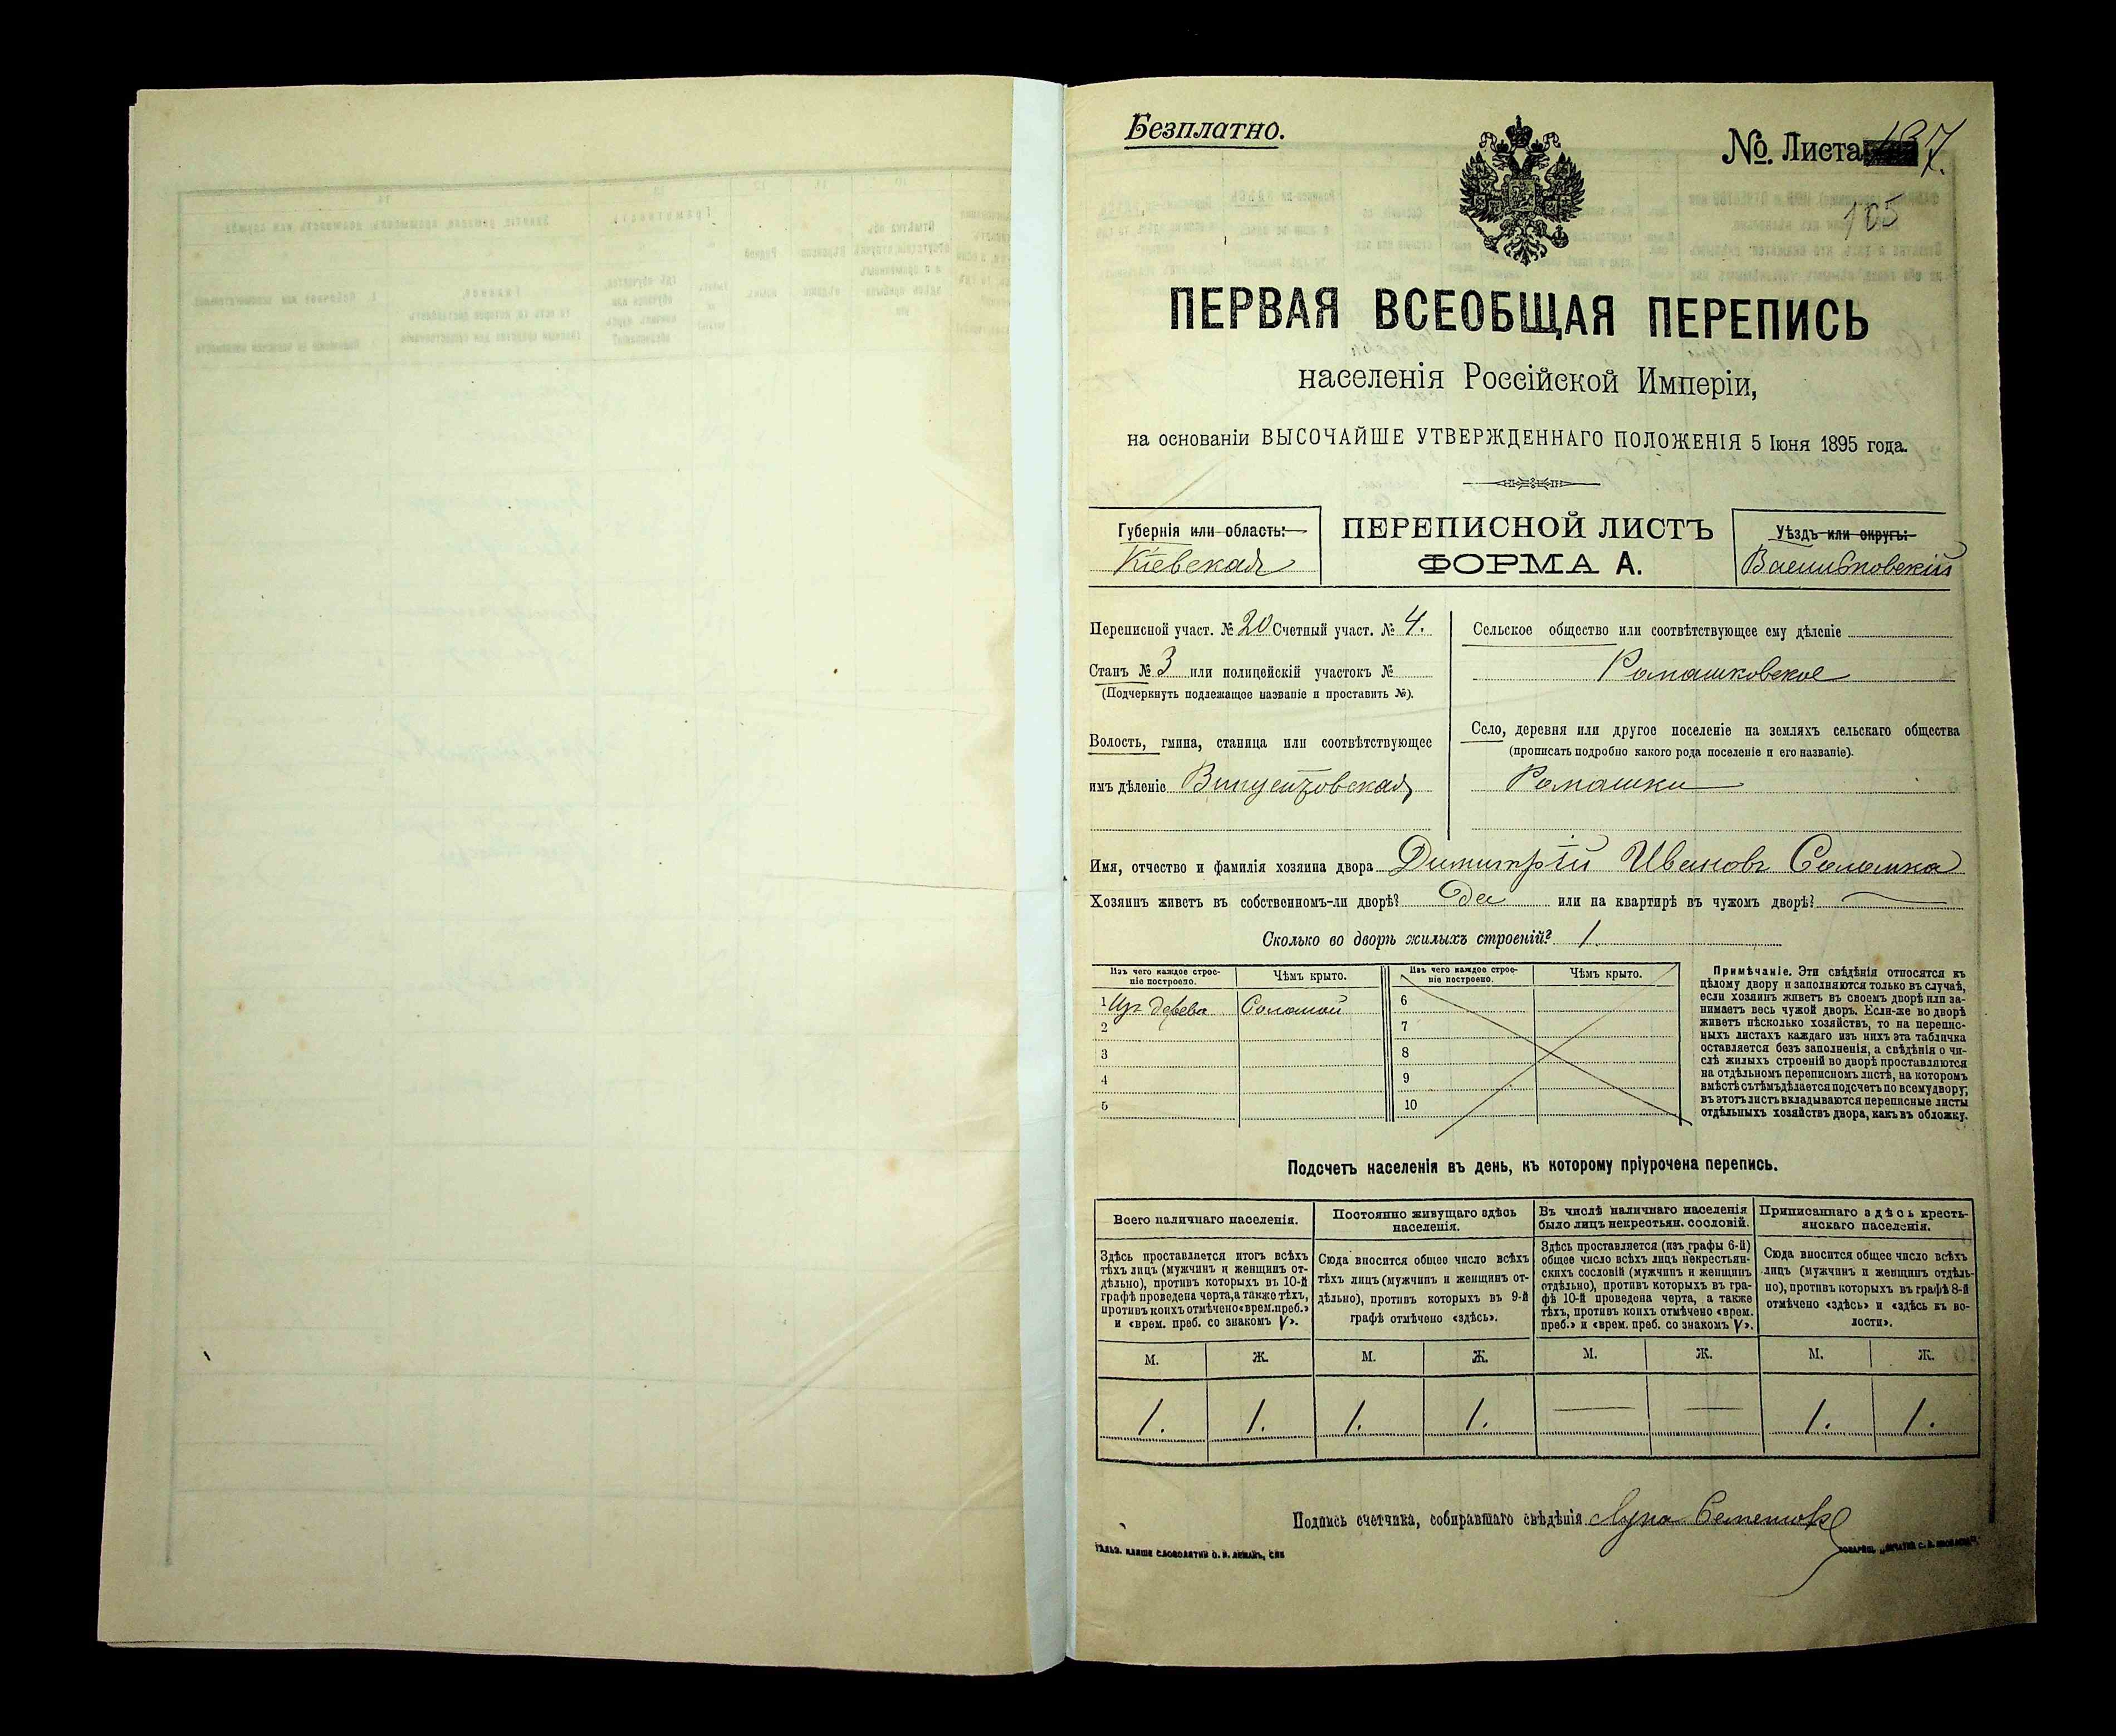 Безплатно.
№ Листа 7.
105
ПЕРВАЯ ВСЕОБЩАЯ ПЕРЕПИСЬ
населенія Россійской Имперіи,
на основаніи ВЫСОЧАЙШЕ УТВЕРЖДЕННАГО ПОЛОЖЕНІЯ 5 Іюня 1895 года.
Губернія или область:
Кіевская
ПЕРЕПИСНОЙ ЛИСТЪ
ФОРМА А.
Уѣздъ или округъ:
Васильковскій
Переписной участ. № 20 Счетный участ. № 4.
Станъ № 3 или полицейскій участокъ №
(Подчеркнуть подлежащее названіе и проставить №).
Волость, гмина, станица или соотвѣтствующее
имъ дѣленіе Винцентовская
Сельское общество или соотвѣтствующее ему дѣленіе
Ромашковское
Село, деревня или другое поселеніе на земляхъ сельскаго общества
(прописать подробно какого рода поселеніе и его названіе).
Ромашки
Имя, отчество и фамилія хозяина двора Димитрій Ивановъ Соломка
Хозяинъ живетъ въ собственномъ-ли дворѣ? Да или на квартирѣ въ чужомъ дворѣ?
Сколько во дворѣ жилыхъ строеній? 1.
Изъ чего каждое строе-
ніе построено.
Чѣмъ крыто.
Изъ чего каждое строе-
ніе построено.
Чѣмъ крыто.
1 Изъ дерева Соломой
2
3
4
5
6
7
8
9
10
Примѣчаніе. Эти свѣдѣнія относятся къ
цѣлому двору и заполняются только въ случаѣ,
если хозяинъ живетъ въ своемъ дворѣ или за-
нимаетъ весь чужой дворъ. Если-же во дворѣ
живетъ нѣсколько хозяйствъ, то на перепис-
ныхъ листахъ каждаго изъ нихъ эта табличка
оставляется безъ заполненія, а свѣдѣнія о чи-
слѣ жилыхъ строеній во дворѣ проставляются
на отдѣльномъ переписномъ листѣ, на которомъ
вмѣстѣ съ тѣмъ дѣлается подсчетъ по всему двору;
въ этотъ листъ вкладываются переписные листы
отдѣльныхъ хозяйствъ двора, какъ въ обложку.
Подсчетъ населенія въ день, къ которому пріурочена перепись.
Всего наличнаго населенія.
Здѣсь проставляется итогъ всѣхъ
тѣхъ лицъ (мужчинъ и женщинъ от-
дѣльно), противъ которыхъ въ 10-й
графѣ проведена черта, а также тѣхъ,
противъ коихъ отмѣчено «врем. преб.»
и «врем. преб. со знакомъ V».
Постоянно живущаго здѣсь
населенія.
Сюда вносится общее число всѣхъ
тѣхъ лицъ (мужчинъ и женщинъ от-
дѣльно), противъ которыхъ въ 9-й
графѣ отмѣчено «здѣсь».
Въ числѣ наличнаго населенія
было лицъ некрестьян. сословій.
Здѣсь проставляется (изъ графы 6-й)
общее число всѣхъ лицъ некрестьян-
скихъ сословій (мужчинъ и женщинъ
отдѣльно), противъ которыхъ въ гра-
фѣ 10-й проведена черта, а также
тѣхъ, противъ коихъ отмѣчено «врем.
преб.» и «врем. преб. со знакомъ V».
Приписаннаго здѣсь кресть-
янскаго населенія.
Сюда вносится общее число всѣхъ
лицъ (мужчинъ и женщинъ отдѣль-
но), противъ которыхъ въ графѣ 8-й
отмѣчено «здѣсь» и «здѣсь къ во-
лости».
М. Ж. М. Ж. М. Ж. М. Ж.
1. 1. 1. 1. — — 1. 1.
Подпись счетчика, собиравшаго свѣдѣнія Лука